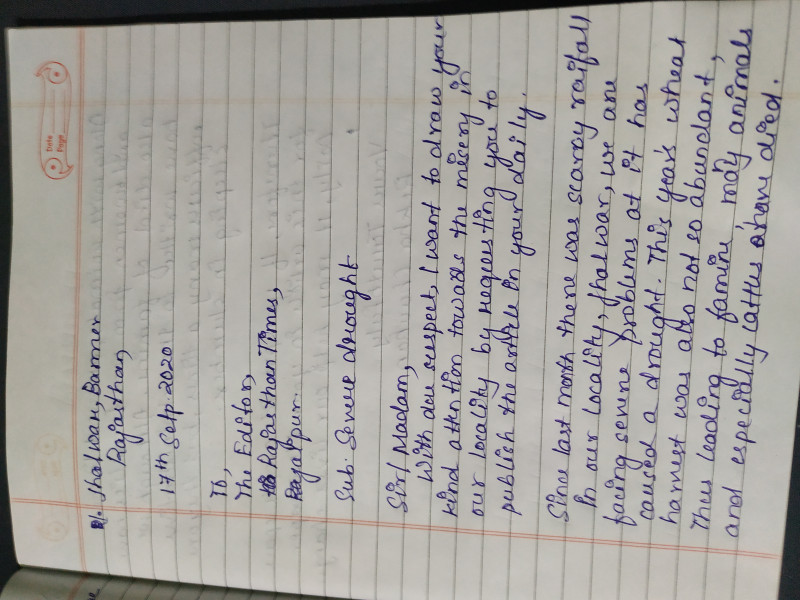 Date
Page
Q. Jhalwar, Barmer
Rajasthan,
17th Sep. 2020
To,
The Editor,
Rajasthan Times,
Sub: Severe drought
Sir/Madam,
With due respect, I want to draw your
kind attntion towards the misery in
our locality by requesting you to
publish the article in your daily.
Since last month there was scarcy raifall
in our locality, Jhalwar, we are
facing severe problems at it has
caused a drought. This year's wheat
harvest was also not so abundant,
Thus leading to famine, may animals
and especially cattles above died.